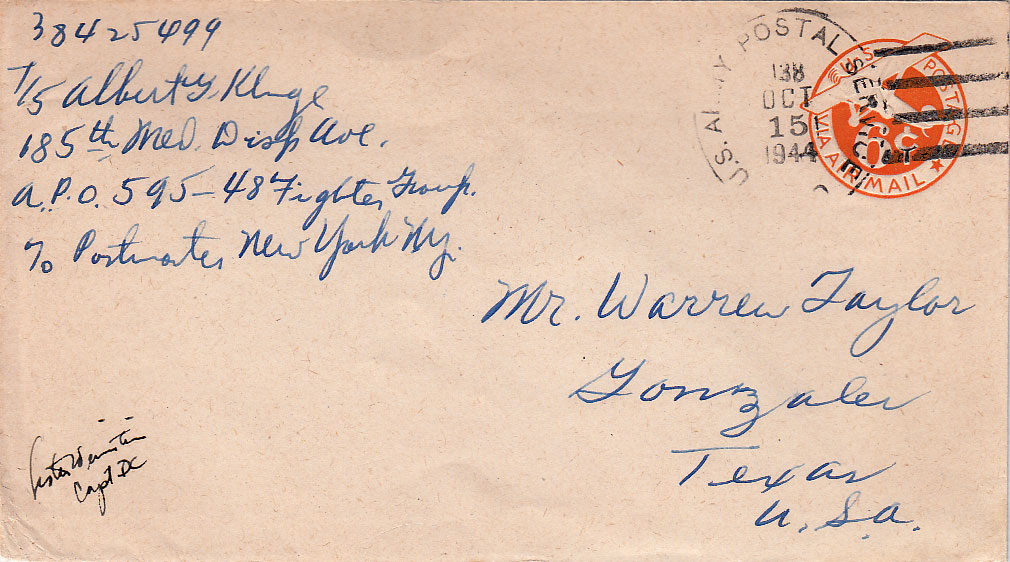 38425499
T/5 Albert G. Kluge
185th Med. Disp Ave.
A.P.O. 595-48 Fighter Group.
c/o Postmaster New York Ny.
U.S. ARMY POSTAL SERVICE
138
OCT
15
1944
U.S. POSTAGE
6c
VIA AIR MAIL
Mr. Warren Taylor
Gonzales
Texas
U.S.A.
Capt DC